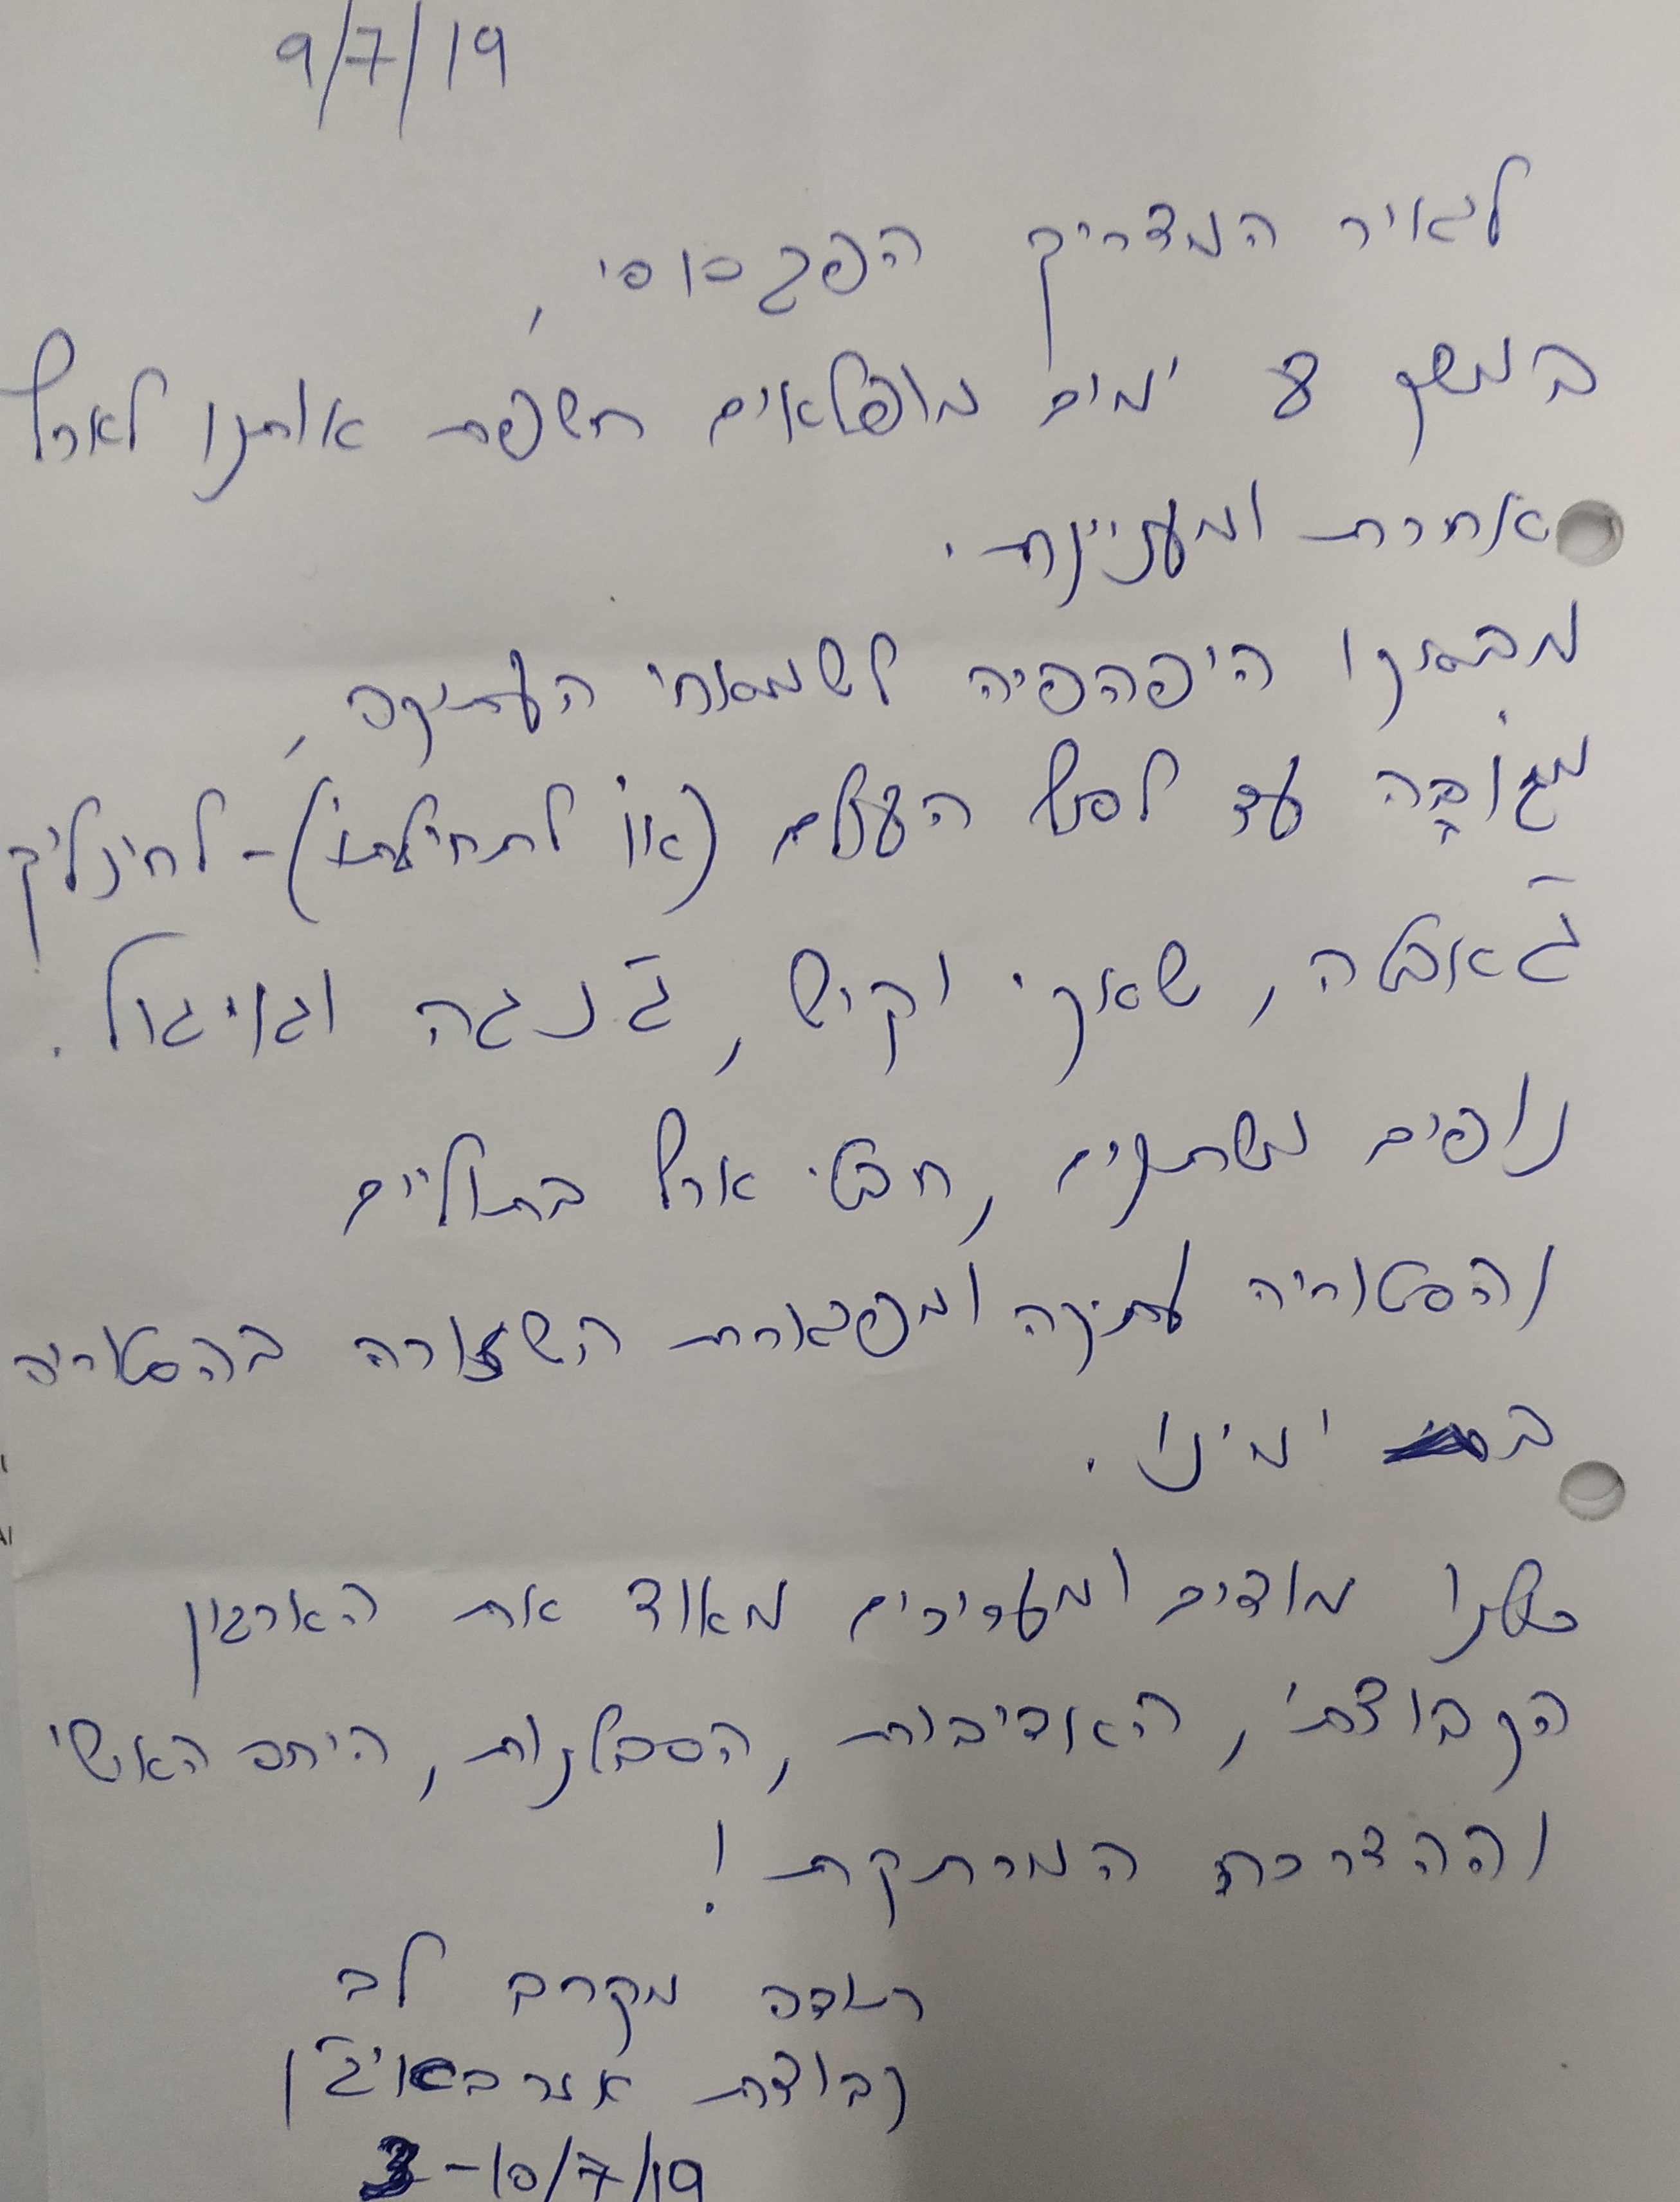 9/7/19
ליאיר המדריך הפנטסטי,
במשך 8 ימים מופלאים חשפת אותנו לארץ
אחרת ומעניינת.
מבאקו היפהפיה לשמאחי העתיקה,
מגובה עד לסוף העולם (או לתחילתו) - לחינליק
גאבלה, שאקי וקיש, גנגה וגויגול.
נופים משתנים, חבלי ארץ בתוליים
והסטוריה עתיקה ומפוארת השזורה בהסטוריה
ב ימינו.
כולנו מודים ומעריכים מאוד את הארגון
הקבוצתי, האדיבות, הסבלנות, היחס האישי
וההדרכה המרתקת!
תודה מקרב לב
קבוצת אזרבאיג'ן
3-10/7/19